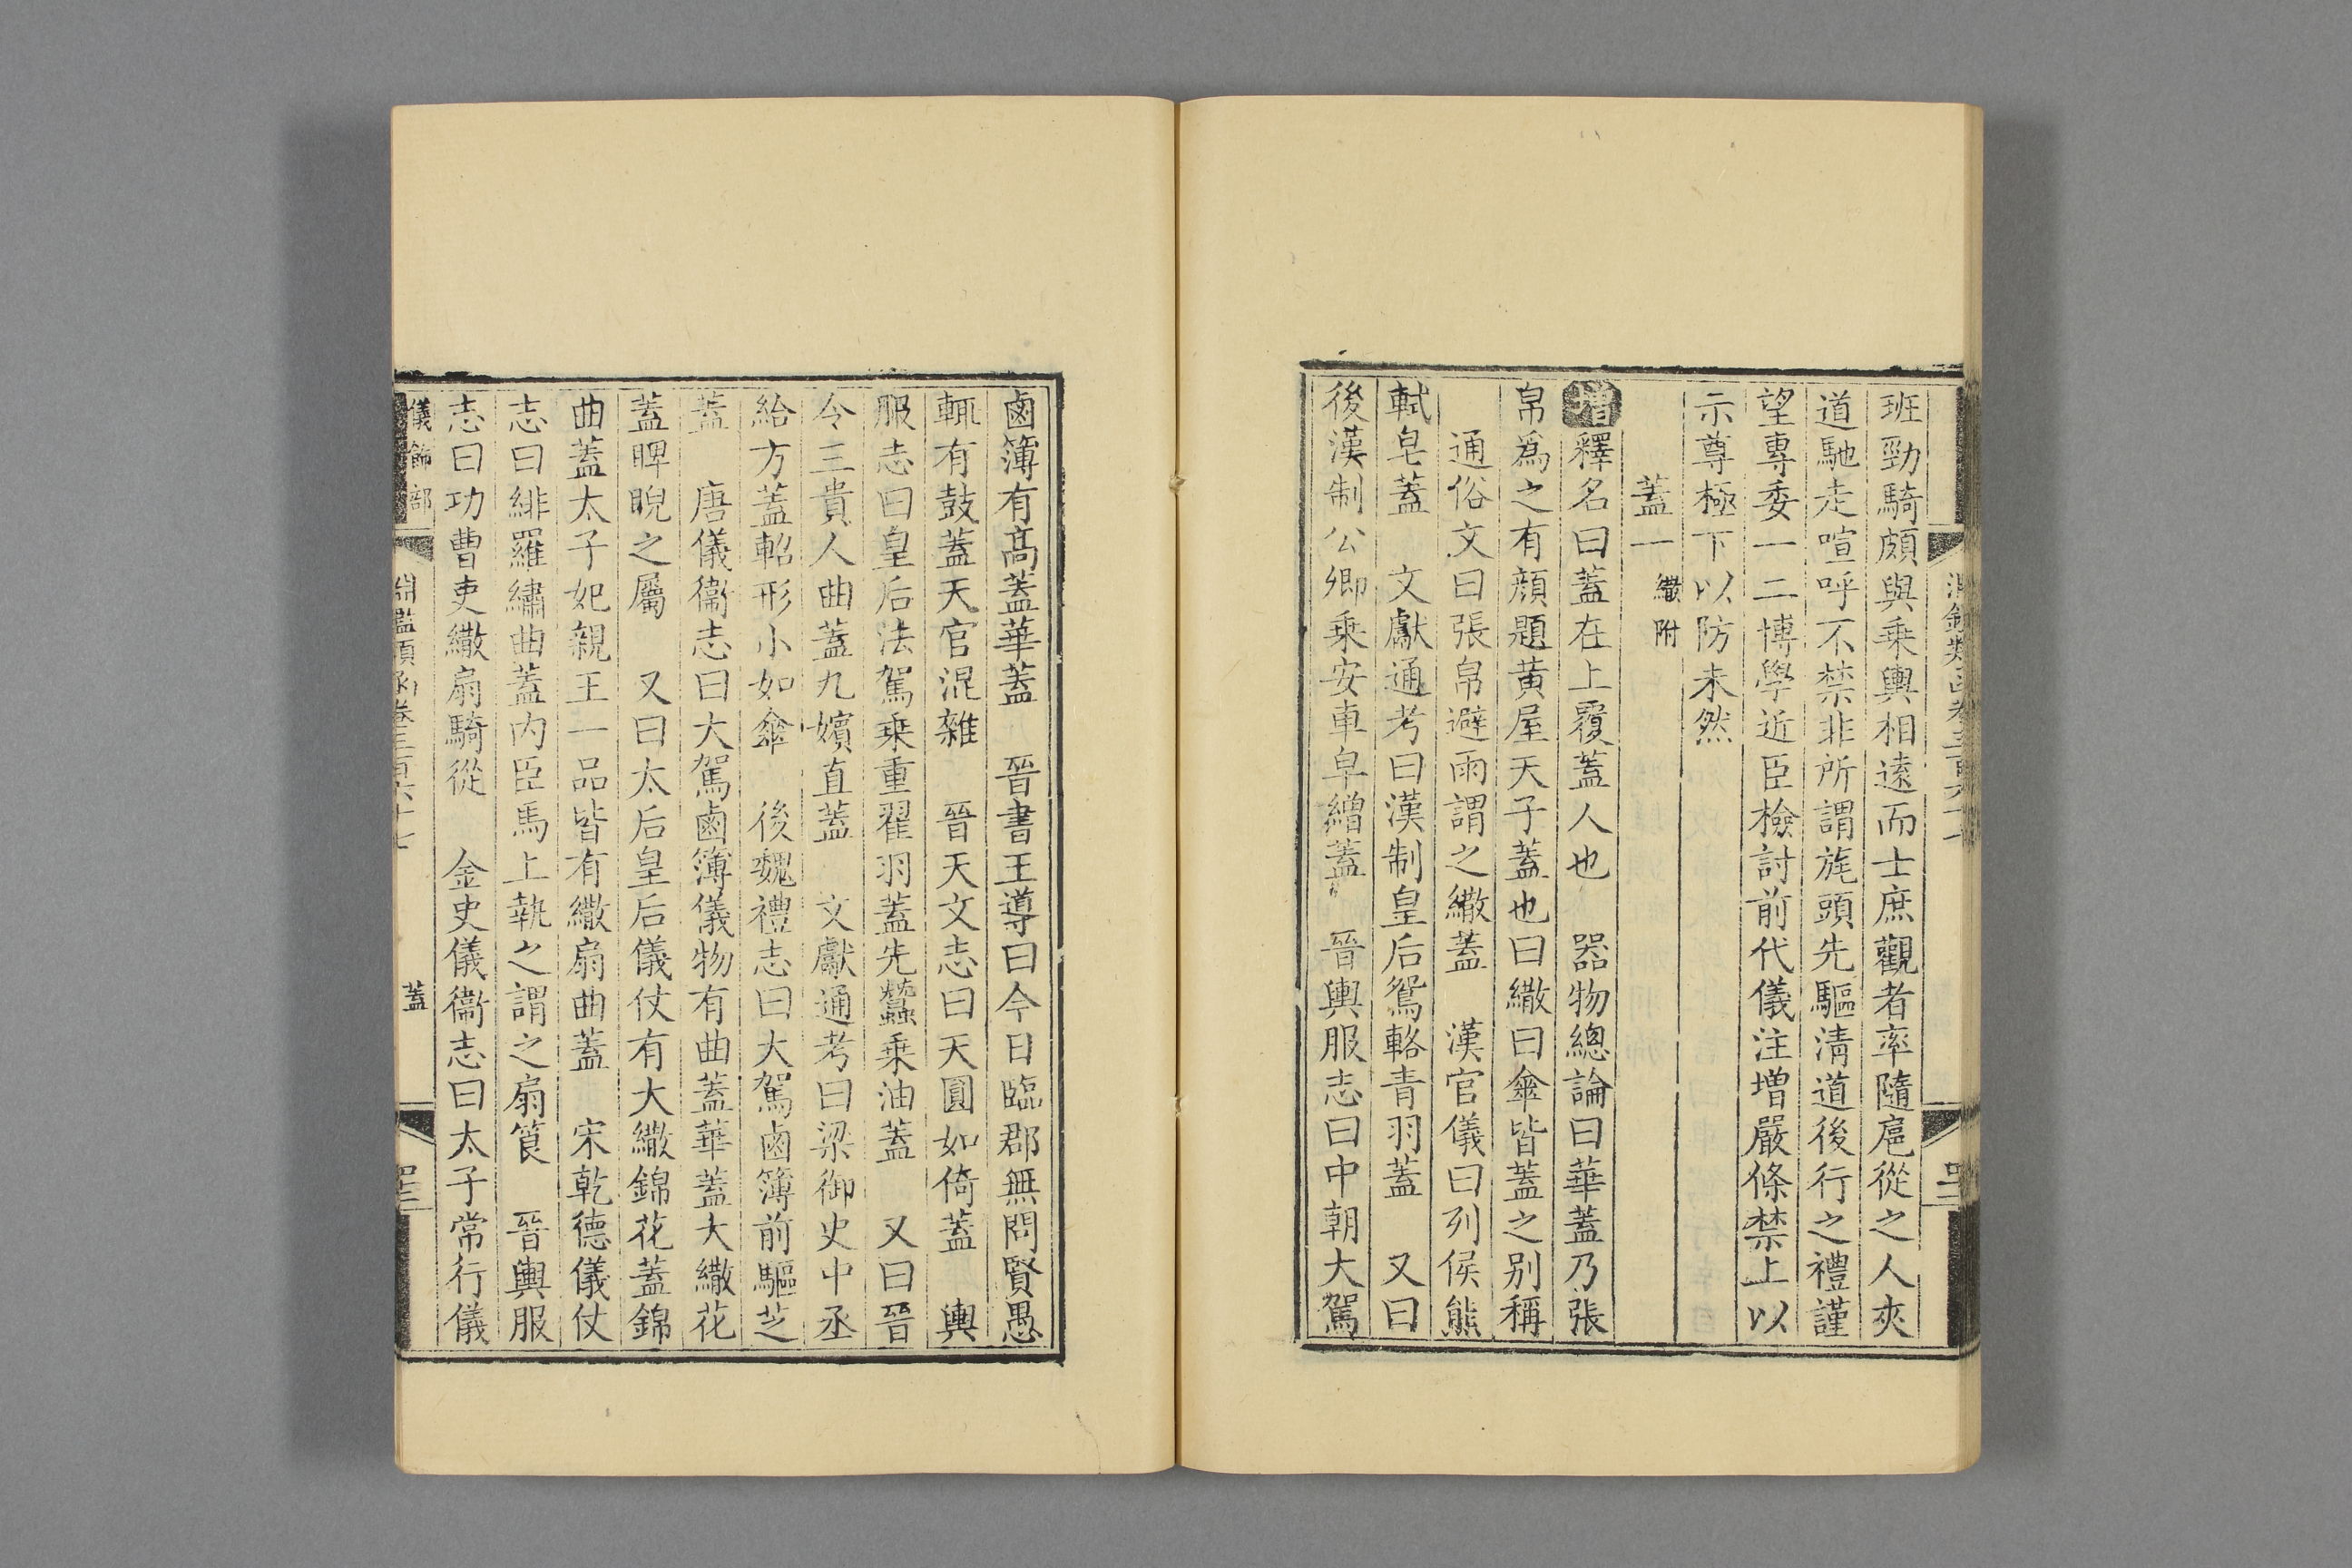 班勁騎頗與乘輿相遠而士庶觀者率隨扈從之人夾
道馳走喧呼不禁非所謂旄頭先驅清道後行之禮謹
望專委一二博學近臣檢討前代儀注增嚴條禁上以
示尊極下以防未然
蓋一 繖附
增釋名曰蓋在上覆蓋人也 器物總論曰華蓋乃張
帛爲之有顔題黃屋天子蓋也曰繖曰傘皆蓋之别稱
通俗文曰張帛避雨謂之繖蓋 漢官儀曰列侯熊
軾皂蓋 文獻通考曰漢制皇后鴛輅青羽蓋 又曰
後漢制公卿乘安車皁繒蓋 晉輿服志曰中朝大駕
鹵簿有高蓋華蓋 晉書王導曰今日臨郡無問賢愚
輒有鼓蓋天官混雜 晉天文志曰天圓如倚蓋 輿
服志曰皇后法駕乘重翟羽蓋先蠶乘油蓋 又曰晉
令三貴人曲蓋九嬪直蓋 文獻通考曰梁御史中丞
給方蓋軺形小如傘 後魏禮志曰大駕鹵簿前驅芝
蓋 唐儀衞志曰大駕鹵簿儀物有曲蓋華蓋大繖花
蓋睥睨之屬 又曰太后皇后儀仗有大繖錦花蓋錦
曲蓋太子妃親王一品皆有繖扇曲蓋 宋乾德儀仗
志曰緋羅繡曲蓋内臣馬上執之謂之扇筤 晉輿服
志曰功曹吏繖扇騎從 金史儀衞志曰太子常行儀
儀飾部 淵鑑類函卷三百六十七 蓋